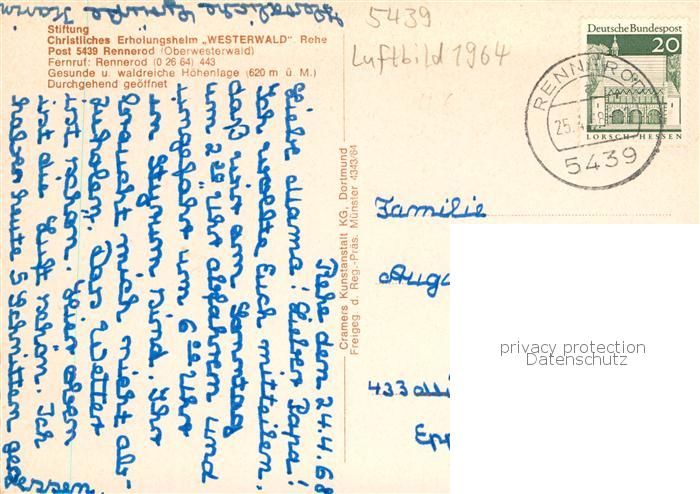 Stiftung
Christliches Erholungsheim „WESTERWALD" Rehe
Post 5439 Rennerod (Oberwesterwald)
Fernruf: Rennerod (0 26 64) 443
Gesunde u. waldreiche Höhenlage (620 m ü. M.)
Durchgehend geöffnet
5439
Luftbild 1964
Deutsche Bundespost
20
LORSCH-HESSEN
RENNEROD
5439
Cramers Kunstanstalt KG, Dortmund
Freigeg. d. Reg.-Präs. Münster 4343/64
Rehe den 24.4.68
Liebe Mama! Lieber Papa!
Ich wollte Euch mitteilen,
daß wir am Sonntag
um 2 Uhr abfahren und
ungefähr um 6 Uhr
in Styrum sind. Ihr
braucht mich nicht ab-
zuholen. Das Wetter
ist schön. Hier oben
ist die Luft schön. Ich
habe heute 5 Schnitten geg
essen
Herzliche Grüße Karin
Familie
Augu
433
Epp
privacy protection
Datenschutz